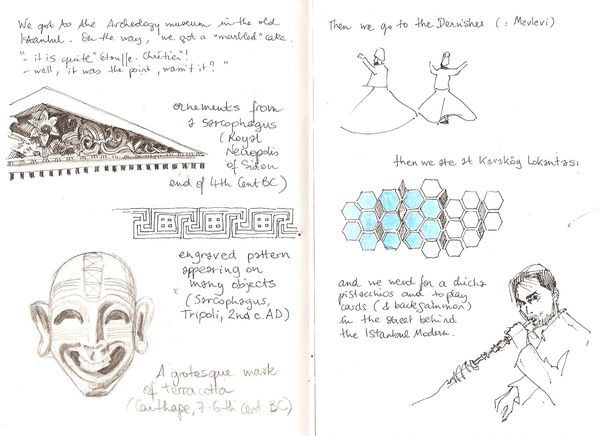 We got to the Archeology museum in the old
Istanbul. On the way, we got a "marbled" cake.
"- it is quite "étouffe-Chrétien"!
- well, it was the point, wasn't it? "
ornements from
a sarcophagus
(Royal
Necropolis
of Sidon
end of 4th Cent BC)
engraved pattern
appearing on
many objects
(Sarcophagus,
Tripoli, 2nd c. AD)
A grotesque mask
of terracotta
(Carthage, 7-6th Cent BC)
Then we go to the Dernishes (= Mevlevi)
then we ate at Karaköy Lokantası
and we wend for a chicha
pistacchios and to play
cards (& backgammon)
in the street behind
the Istanbul Modern.